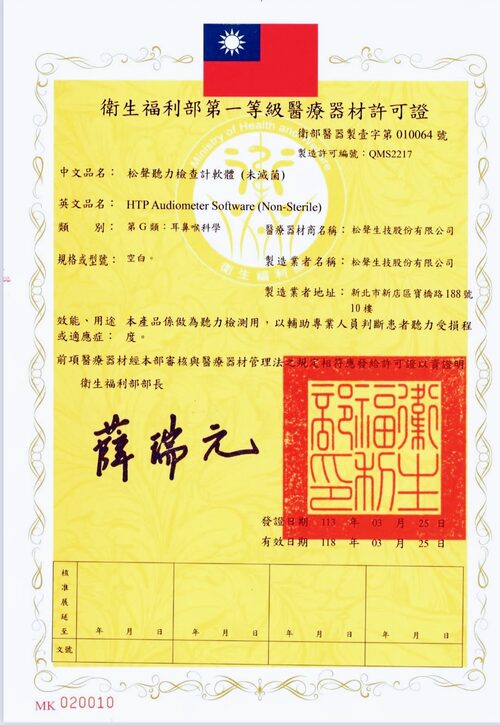 衛生福利部第一等級醫療器材許可證
衛部醫器製壹字第 010064 號
製造許可編號：QMS2217
Ministry of Health and Welfare
衛生福利
中文品名： 松聲聽力檢查計軟體 (未滅菌)
英文品名： HTP Audiometer Software (Non-Sterile)
類 別： 第 G 類：耳鼻喉科學 醫療器材商名稱： 松聲生技股份有限公司
規格或型號： 空白。 製造業者名稱： 松聲生技股份有限公司
製造業者地址： 新北市新店區寶橋路 188 號
10 樓
效能、用途 本產品係做為聽力檢測用，以輔助專業人員判斷患者聽力受損程
或適應症： 度。
前項醫療器材經本部審核與醫療器材管理法之規定相符應發給許可證以資證明
衛生福利部部長
薛瑞元
衛生福利部印
發證日期 113 年 03 月 25 日
有效日期 118 年 03 月 25 日
核准展延至 年 月 日 年 月 日 年 月 日 年 月 日
文號
MK 020010